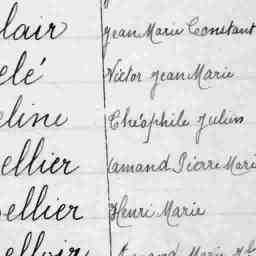 lair Jean Marie Constant
elé Victor Jean Marie
eline Théophile Julien
ellier Amand Pierre Mari
ellier Henri Marie
Armand Marie